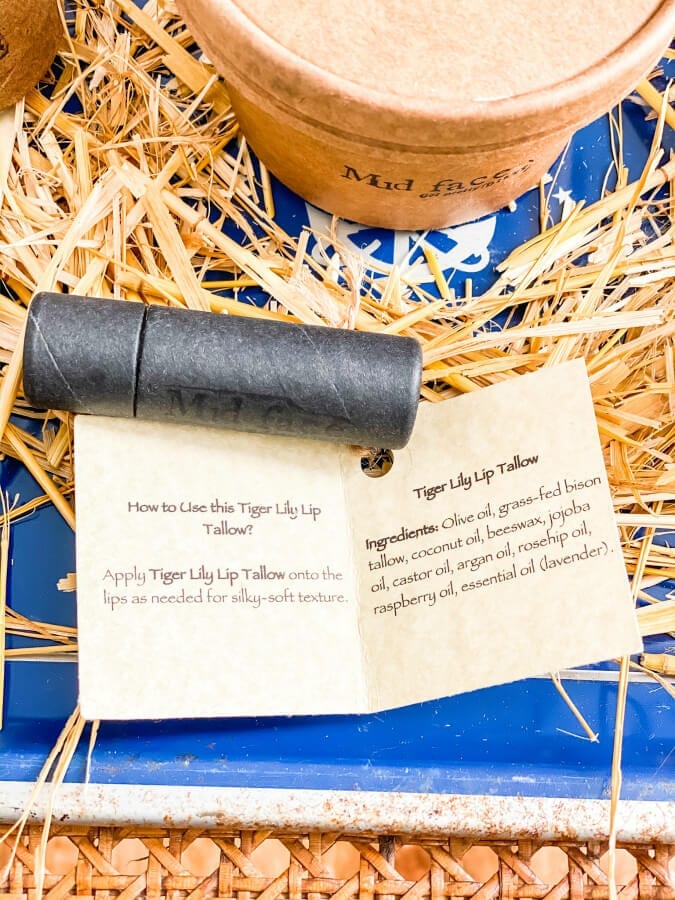 Mud faces
Mud face
How to Use this Tiger Lily Lip
Tallow?
Apply Tiger Lily Lip Tallow onto the
lips as needed for silky-soft texture.
Tiger Lily Lip Tallow
Ingredients: Olive oil, grass-fed bison
tallow, coconut oil, beeswax, jojoba
oil, castor oil, argan oil, rosehip oil,
raspberry oil, essential oil (lavender).